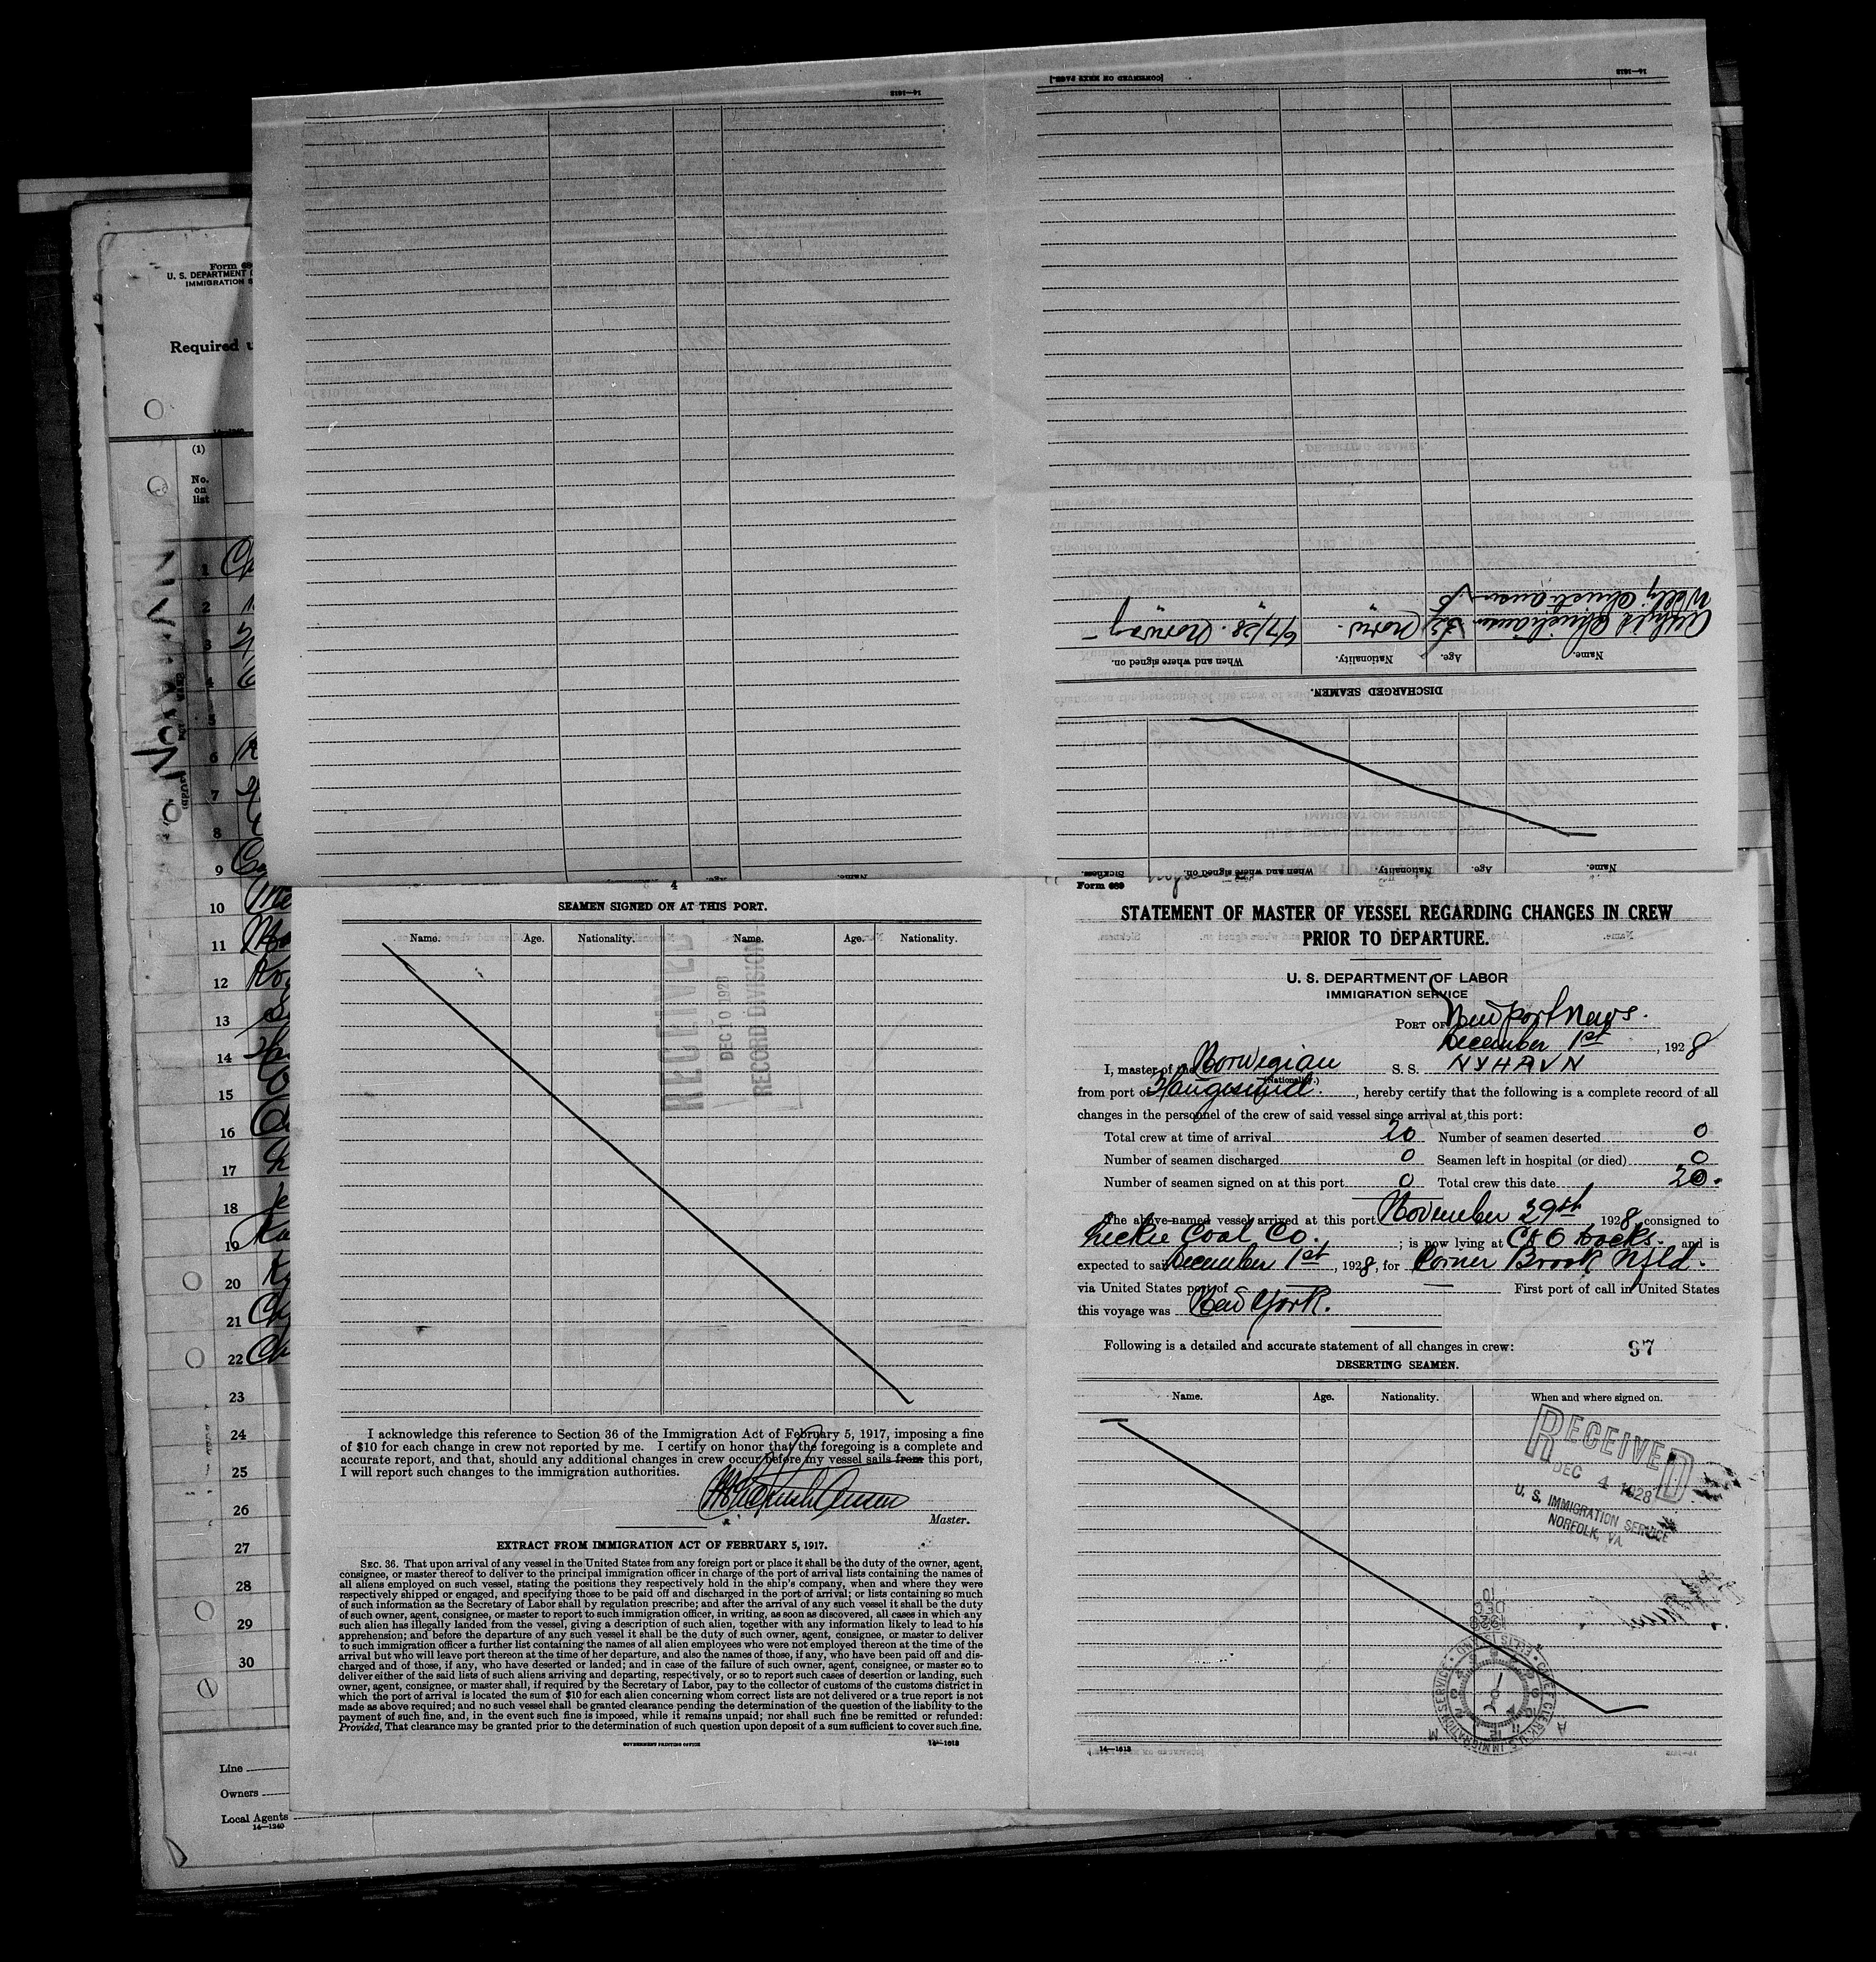 [CONTINUED ON NEXT PAGE.]
14—1613
14—1613
DISCHARGED SEAMEN.
Name.
Age.
Nationality.
When and where signed on.
Christiansen
Norw.
6/7/28. Norway
Willy Christiansen
Name.
Age.
Nationality.
When and where signed on.
Sickness.
Form 68
U. S. DEPARTMENT
IMMIGRATION S
Required u
(1)
No.
on
list
1
2
3
4
5
6
7
8
9
10
11
12
13
14
15
16
17
18
19
20
21
22
23
24
25
26
27
28
29
30
Line
Owners
Local Agents
14—1240
4
SEAMEN SIGNED ON AT THIS PORT.
Name. Age. Nationality. Name. Age. Nationality.
RECEIVED
DEC 10 1928
RECORD DIVISION
I acknowledge this reference to Section 36 of the Immigration Act of February 5, 1917, imposing a fine
of $10 for each change in crew not reported by me. I certify on honor that the foregoing is a complete and
accurate report, and that, should any additional changes in crew occur before my vessel sails from this port,
I will report such changes to the immigration authorities.
Master.
EXTRACT FROM IMMIGRATION ACT OF FEBRUARY 5, 1917.
SEC. 36. That upon arrival of any vessel in the United States from any foreign port or place it shall be the duty of the owner, agent,
consignee, or master thereof to deliver to the principal immigration officer in charge of the port of arrival lists containing the names of
all aliens employed on such vessel, stating the positions they respectively hold in the ship's company, when and where they were
respectively shipped or engaged, and specifying those to be paid off and discharged in the port of arrival; or lists containing so much
of such information as the Secretary of Labor shall by regulation prescribe; and after the arrival of any such vessel it shall be the duty
of such owner, agent, consignee, or master to report to such immigration officer, in writing, as soon as discovered, all cases in which any
such alien has illegally landed from the vessel, giving a description of such alien, together with any information likely to lead to his
apprehension; and before the departure of any such vessel it shall be the duty of such owner, agent, consignee, or master to deliver
to such immigration officer a further list containing the names of all alien employees who were not employed thereon at the time of the
arrival but who will leave port thereon at the time of her departure, and also the names of those, if any, who have been paid off and dis-
charged and of those, if any, who have deserted or landed; and in case of the failure of such owner, agent, consignee, or master so to
deliver either of the said lists of such aliens arriving and departing, respectively, or so to report such cases of desertion or landing, such
owner, agent, consignee, or master shall, if required by the Secretary of Labor, pay to the collector of customs of the customs district in
which the port of arrival is located the sum of $10 for each alien concerning whom correct lists are not delivered or a true report is not
made as above required; and no such vessel shall be granted clearance pending the determination of the question of the liability to the
payment of such fine, and, in the event such fine is imposed, while it remains unpaid; nor shall such fine be remitted or refunded:
Provided, That clearance may be granted prior to the determination of such question upon deposit of a sum sufficient to cover such fine.
GOVERNMENT PRINTING OFFICE
14—1613
Form 689
STATEMENT OF MASTER OF VESSEL REGARDING CHANGES IN CREW
PRIOR TO DEPARTURE.
U. S. DEPARTMENT OF LABOR
IMMIGRATION SERVICE
PORT OF Newport News.
December 1st, 1928
I, master of the Norwegian S. S. NYHAVN
(Nationality.)
from port of Haugesund., hereby certify that the following is a complete record of all
changes in the personnel of the crew of said vessel since arrival at this port:
Total crew at time of arrival 20 Number of seamen deserted 0
Number of seamen discharged 0 Seamen left in hospital (or died) 0
Number of seamen signed on at this port 0 Total crew this date 20.
The above-named vessel arrived at this port November 29th 1928, consigned to
Leckie Coal Co.; is now lying at C & O Docks. and is
expected to sail December 1st, 1928, for Corner Brook Nfld.
via United States port of — First port of call in United States
this voyage was New York.
Following is a detailed and accurate statement of all changes in crew: 97
DESERTING SEAMEN.
Name. Age. Nationality. When and where signed on.
RECEIVED
DEC 4 1928
U. S. IMMIGRATION SERVICE
NORFOLK, VA.
1928
DEC
10
CHIEF CLERK U.S. IMMIGRATION SERVICE ELLIS ISLAND
A M
14—1613